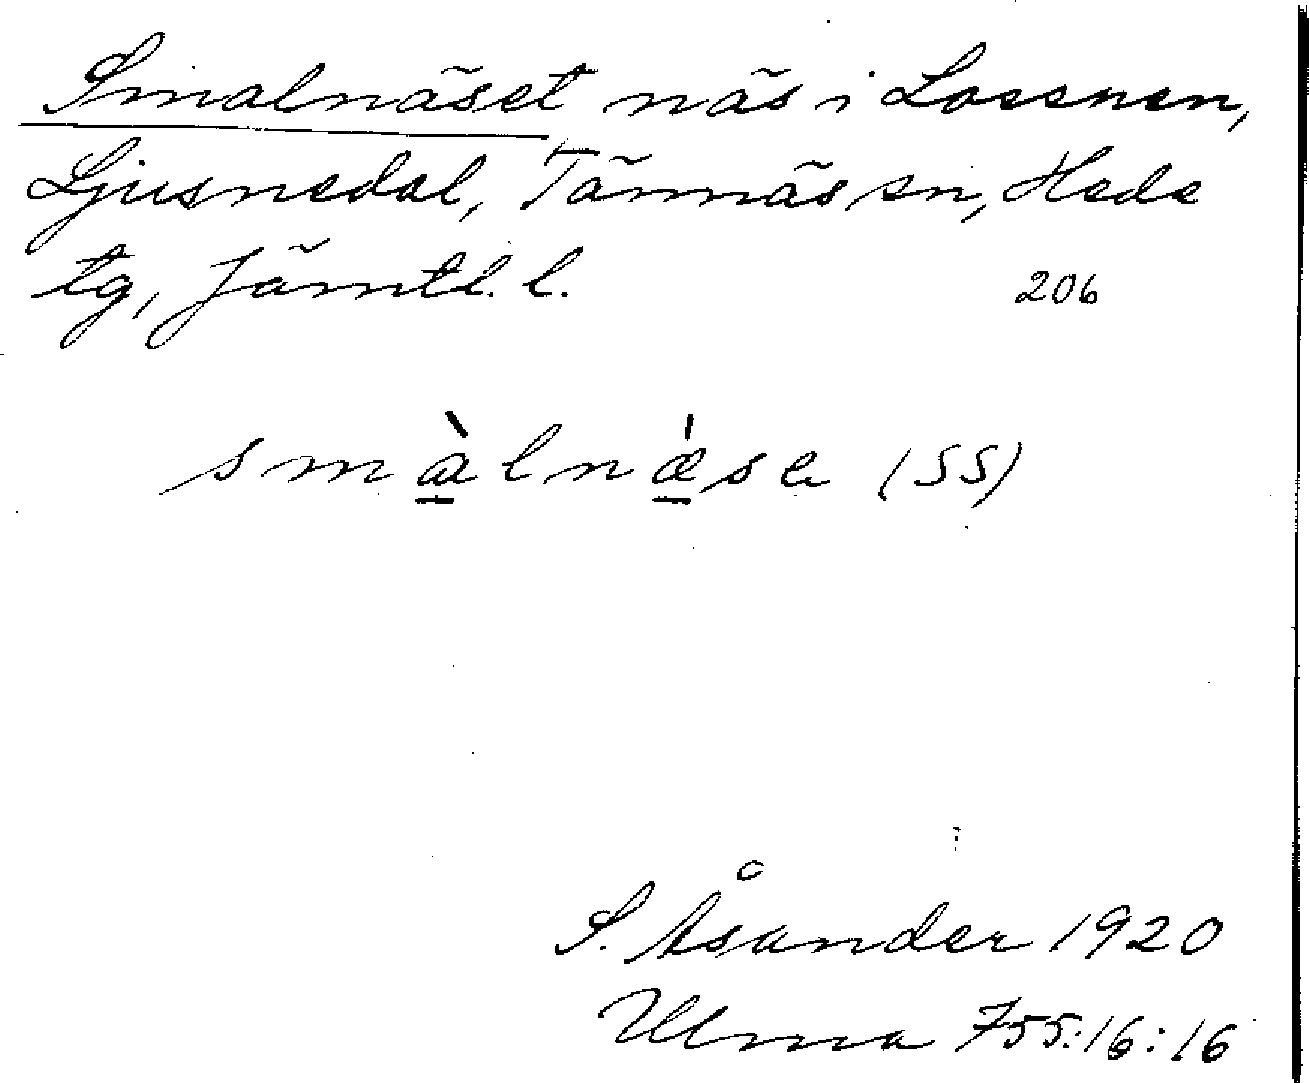 Smalnäset näs i Lossnen,
Ljusnedal, Tännäs sn, Hede
tg, Jämtl. l. 206
smàlnæ̀sa (SS)
S. Åsander 1920
Ulma 755:16:16